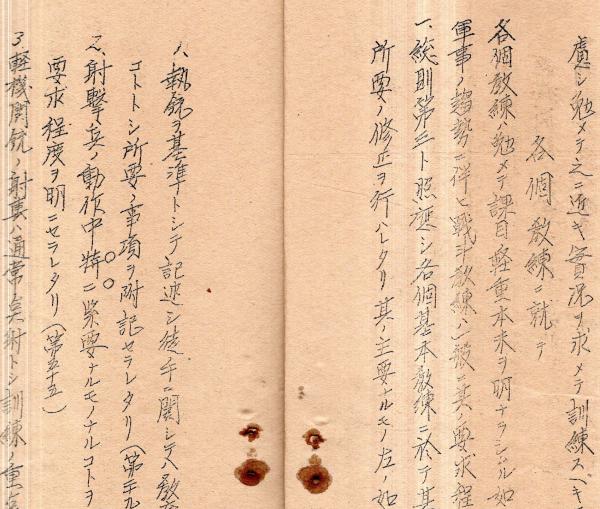 慮シ勉メテ之ニ近キ實況ヲ求メテ訓練スベキ
各個教練ニ就テ
各個教練ハ勉メテ課目軽重本末ヲ明ナラシムル如
軍事ノ趨勢ニ伴ヒ戦斗教練ハ一般ニ其ノ要求程
一、総則第三ト照應シ各個基本教練ニ於テ其
所要ノ修正ヲ行ハレタリ其ノ主要ナルモノ左ノ如
1、執銃ヲ基準トシテ記述シ徒手ニ関シテハ教
コトトシ所要ノ事項ヲ附記セラレタリ(第二九ル
2、射撃ハ兵ノ動作中特ニ緊要ナルモノナルコトヲ
要求程度ヲ明ニセラレタリ(第五十五)
3、軽機関銃ノ射裏ハ通常矣射トシ訓練ノ重